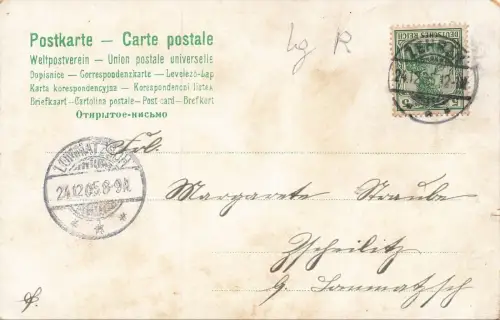 Postkarte — Carte postale
Weltpostverein — Union postale universelle
Dopisnice — Correspondenzkarte — Levelező-Lap
Karta korespondencyjna — Korespondencni listek
Briefkaart — Cartolina postale — Post card — Brefkort
Открытое-письмо
DEUTSCHES REICH
5 5
24.12.05.8-9N.
Margarete Straube
Zscheilitz
b. Lommatzsch